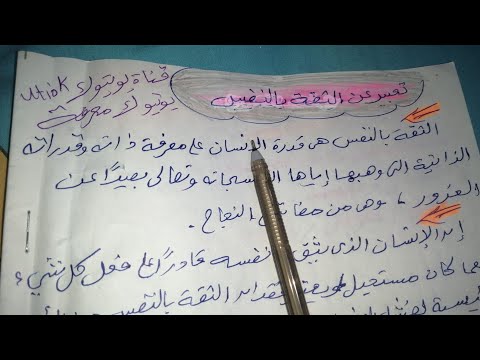 قناة يوتيوك utiok
يوتيوك معرفة
تعبير عن الثقة بالنفس
الثقة بالنفس هي قدرة الإنسان على معرفة ذاته وقدراته
الذاتية التي وهبها إياها الله سبحانه وتعالى بعيدًا عن
الغرور، وهي من مفاتيح النجاح.
إن الإنسان الذي يثق نفسه قادرًا على فعل كل شيء
مهما كان مستحيل الثقة بالنفس